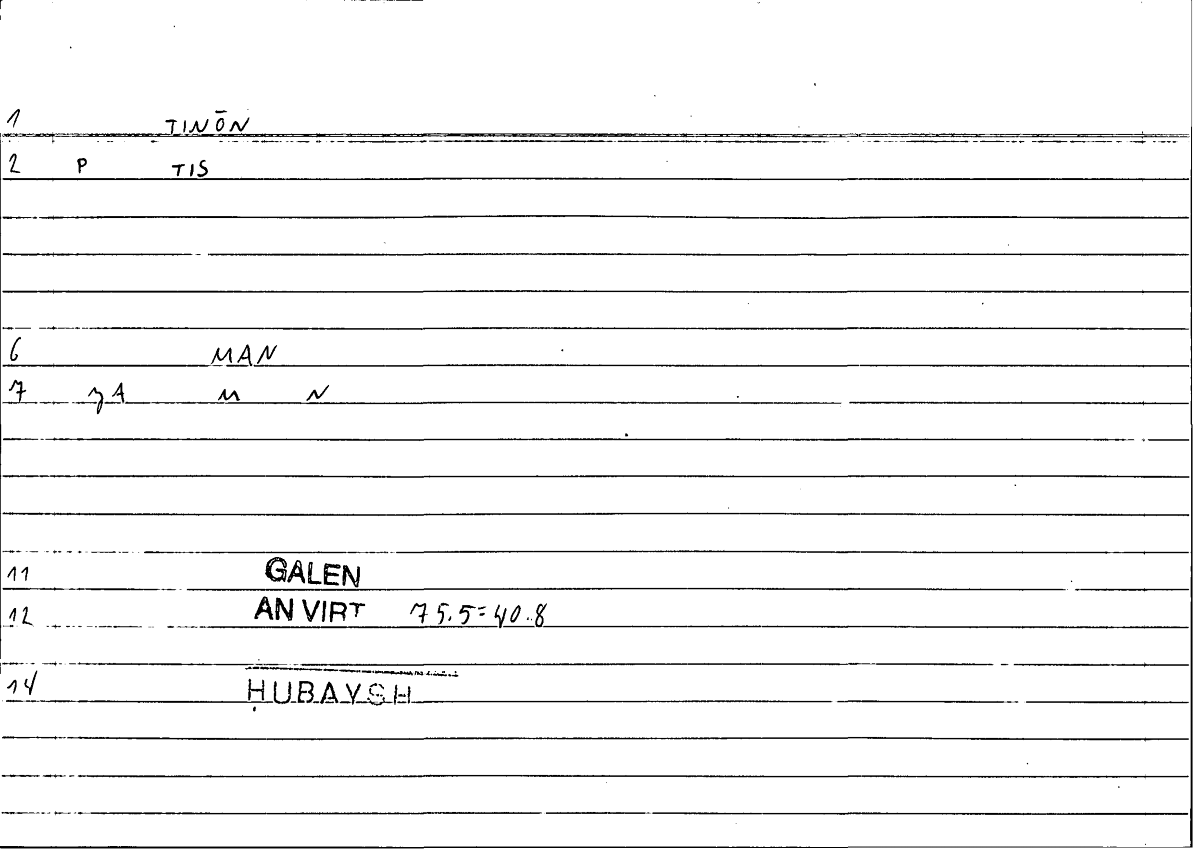 1 TINŌN
2 P TIS
6 MAN
7 ʒA M N
11 GALEN
12 AN VIRT 75.5=40.8
14 ḤUBAYSH